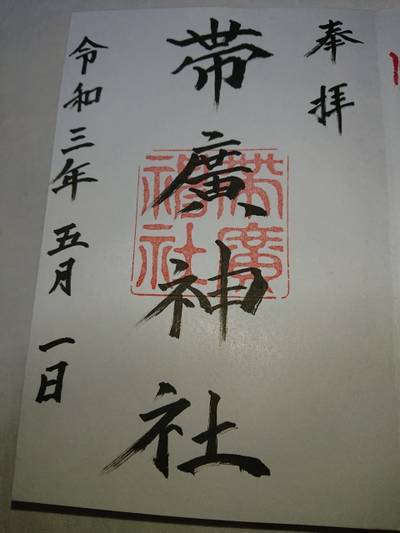 奉拝
帯廣神社
帯廣
神社
令和三年五月一日